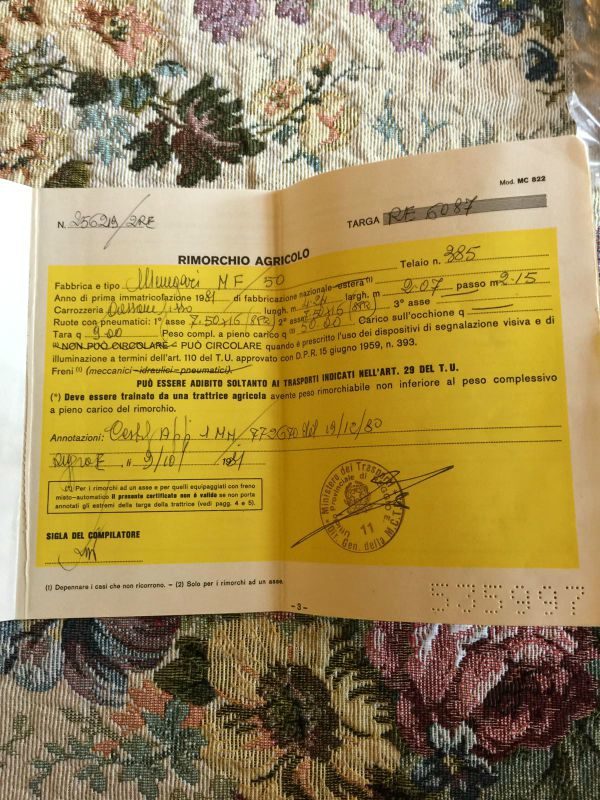 Mod. MC 822
N. 25619/2RE TARGA RE 6087
RIMORCHIO AGRICOLO
Telaio n. 385
Fabbrica e tipo MF 50
Anno di prima immatricolazione 1981 di fabbricazione nazionale estera (1)
Carrozzeria lungh. m 4.24 largh. m 2.07 passo m 2.15
Ruote con pneumatici: 1° asse 7.50x16 (8PR) 2° asse 7.50x16 (8PR) 3° asse
Tara q 9.00 Peso compl. a pieno carico q 50.00 Carico sull'occhione q
(1) NON PUÒ CIRCOLARE - PUÒ CIRCOLARE quando è prescritto l'uso dei dispositivi di segnalazione visiva e di
illuminazione a termini dell'art. 110 del T.U. approvato con D.P.R. 15 giugno 1959, n. 393.
Freni (1) (meccanici - idraulici - pneumatici).
PUÒ ESSERE ADIBITO SOLTANTO AI TRASPORTI INDICATI NELL'ART. 29 DEL T. U.
(*) Deve essere trainato da una trattrice agricola avente peso rimorchiabile non inferiore al peso complessivo
a pieno carico del rimorchio.
Annotazioni: App del 19/12/80
, lì 9/10/ 1981
(2) Per i rimorchi ad un asse e per quelli equipaggiati con freno
misto-automatico il presente certificato non è valido se non porta
annotati gli estremi della targa della trattrice (vedi pagg. 4 e 5).
Ministero dei Trasporti
Ufficio Provinciale di
Dir. Gen. della M.C.T.C.
11
SIGLA DEL COMPILATORE
(1) Depennare i casi che non ricorrono. – (2) Solo per i rimorchi ad un asse.
- 3 -
535997